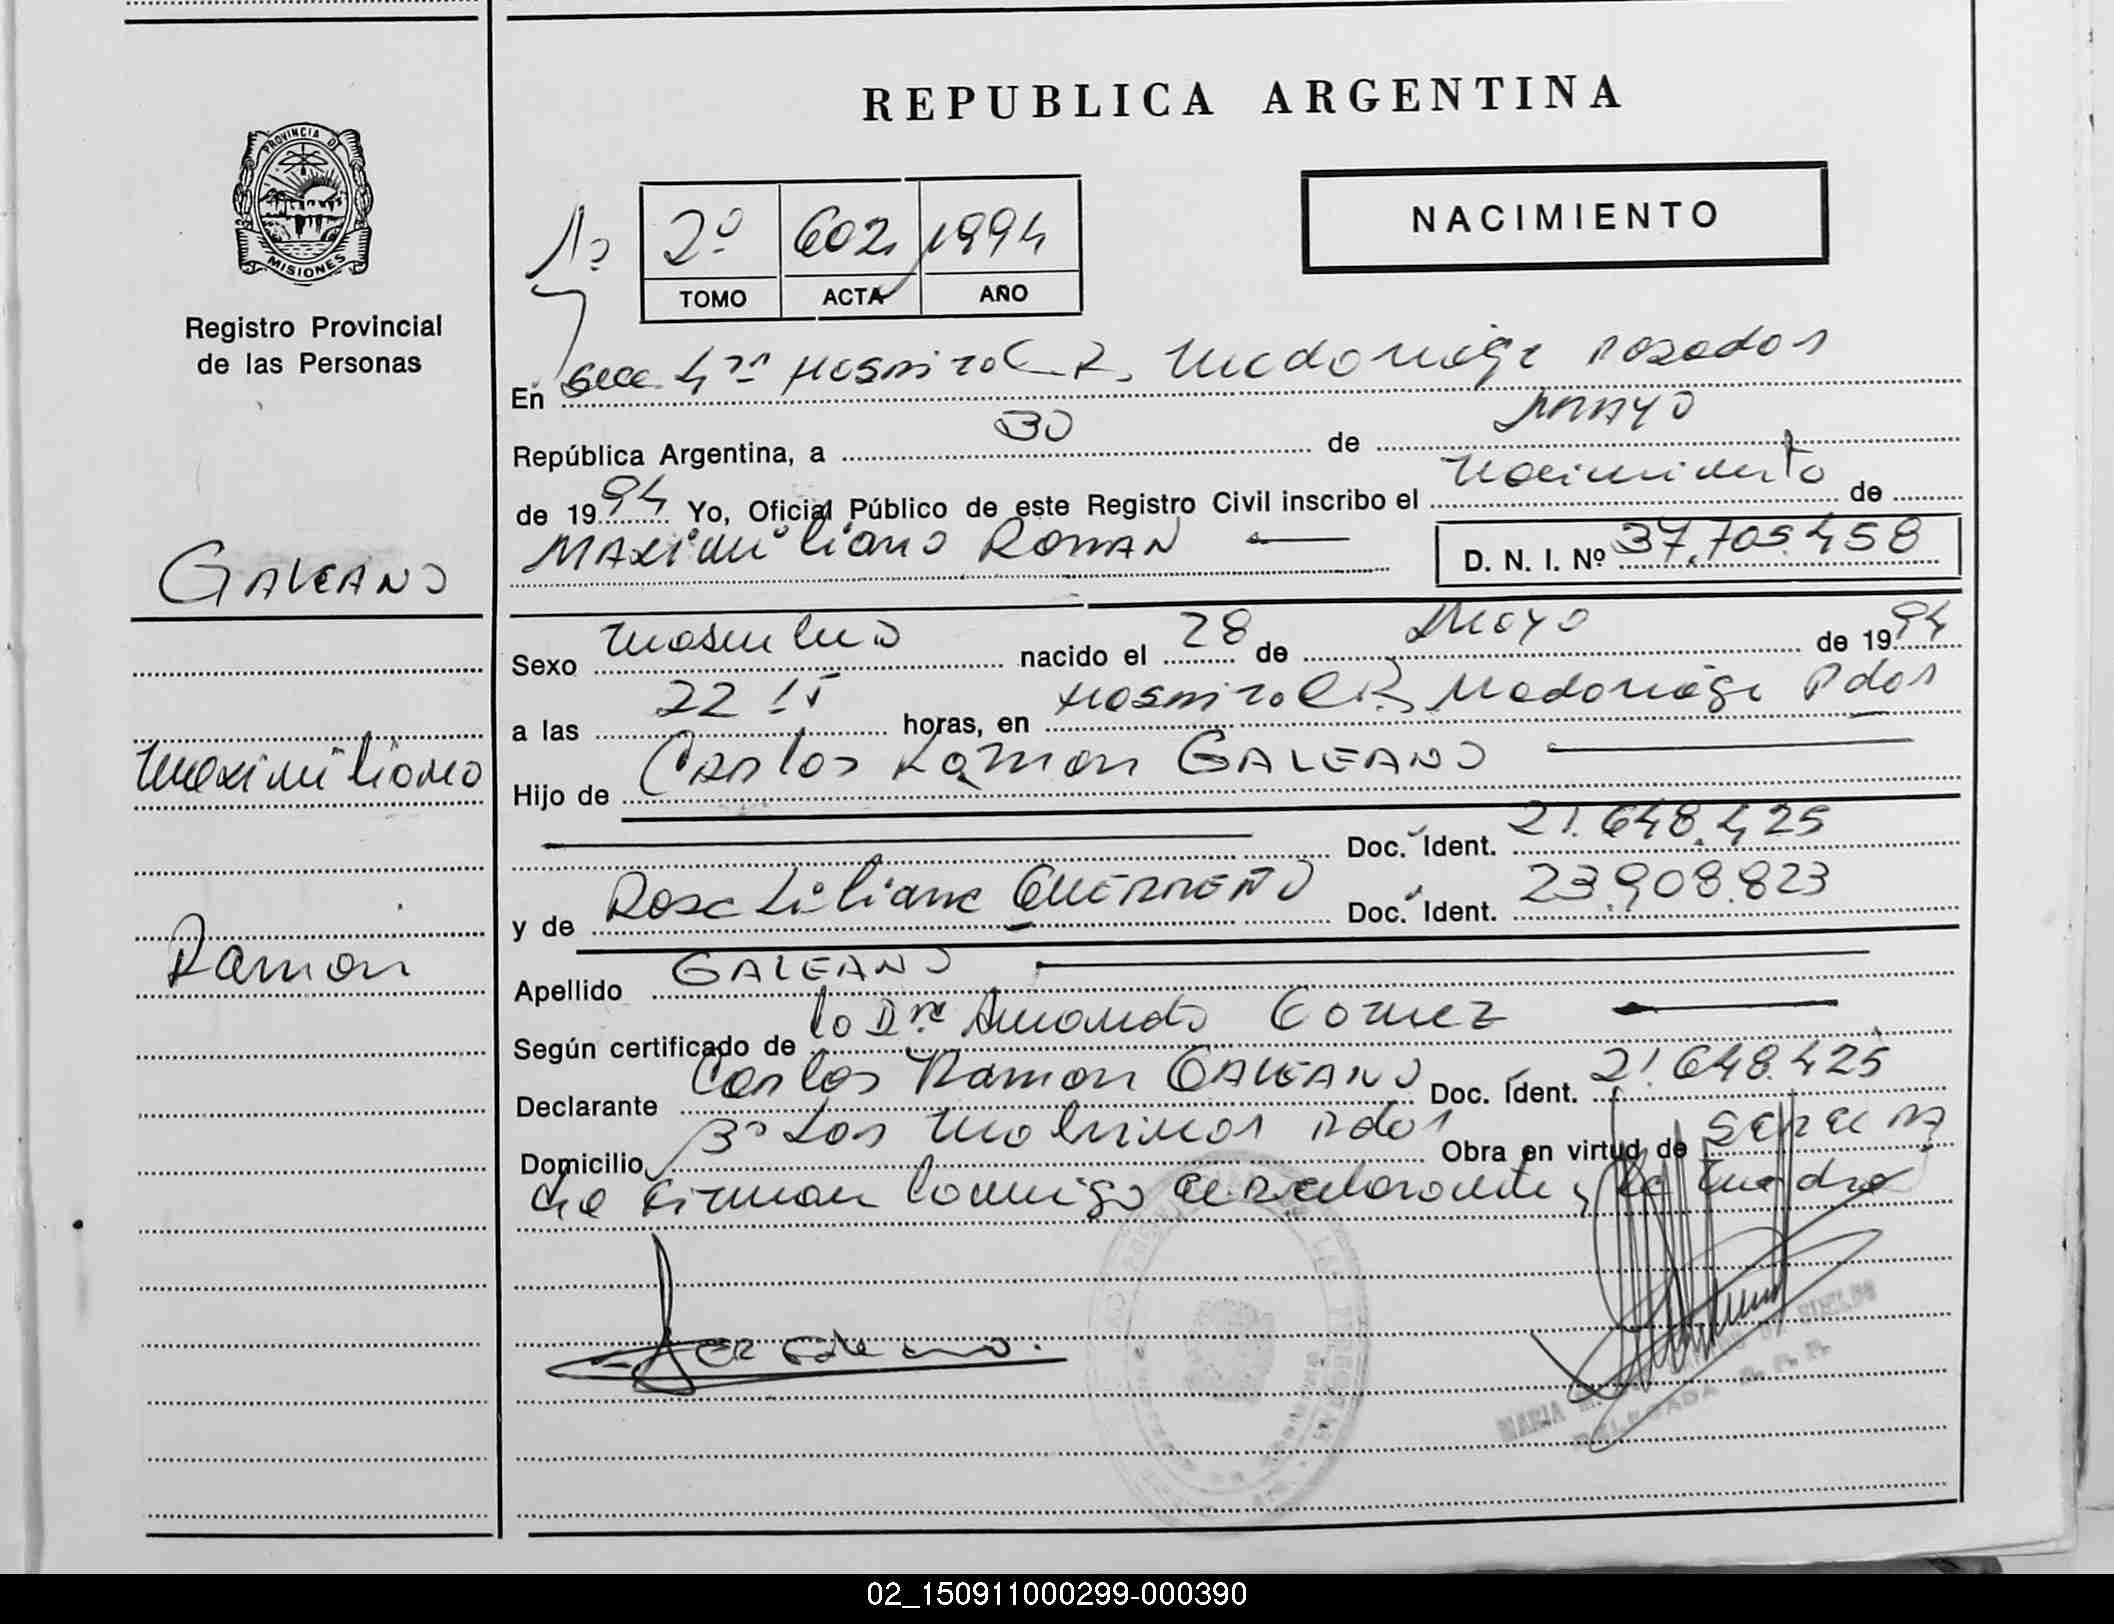 REPUBLICA ARGENTINA
PROVINCIA D
MISIONES
Registro Provincial
de las Personas
NACIMIENTO
1º 2º 602 1994
TOMO ACTA AÑO
En Secc 4ta Hospital R. Madariaga Posadas
República Argentina, a 30 de MAYO
de 1994 Yo, Oficial Público de este Registro Civil inscribo el Nacimiento de
MAximiliano ROMAN D. N. I. Nº 37.705.458
GALEANO
Maximiliano
Ramon
Sexo Masculino nacido el 28 de Mayo de 1994
a las 22 15 horas, en Hospital R. Madariaga Pdas
Hijo de Carlos Ramon GALEANO
Doc. Ident. 21.648.425
y de Rosa Liliana GUERREÑO Doc. Ident. 23.908.823
Apellido GALEANO
Según certificado de la Dra Amanda Gomez
Declarante Carlos Ramon GALEANO Doc. Ident. 21.648.425
Domicilio Bº Los Pdas Obra en virtud de
Firman Conmigo el Declarante y la madre
MARIA DE
DELEGADA R. P. P.
02_150911000299-000390